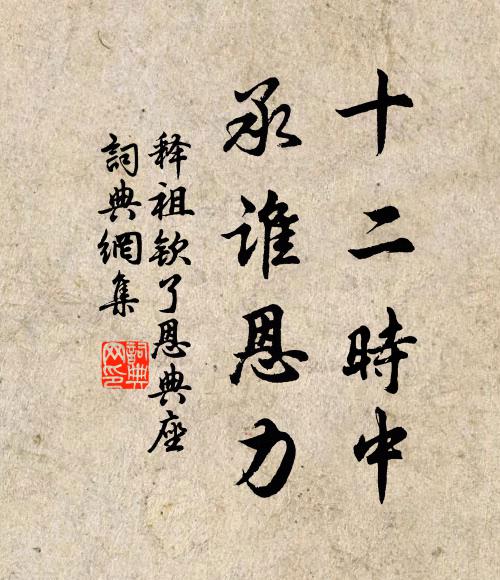 十二時中
承谁恩力
释祖欽了恩典座
詞典網集
詞典网印